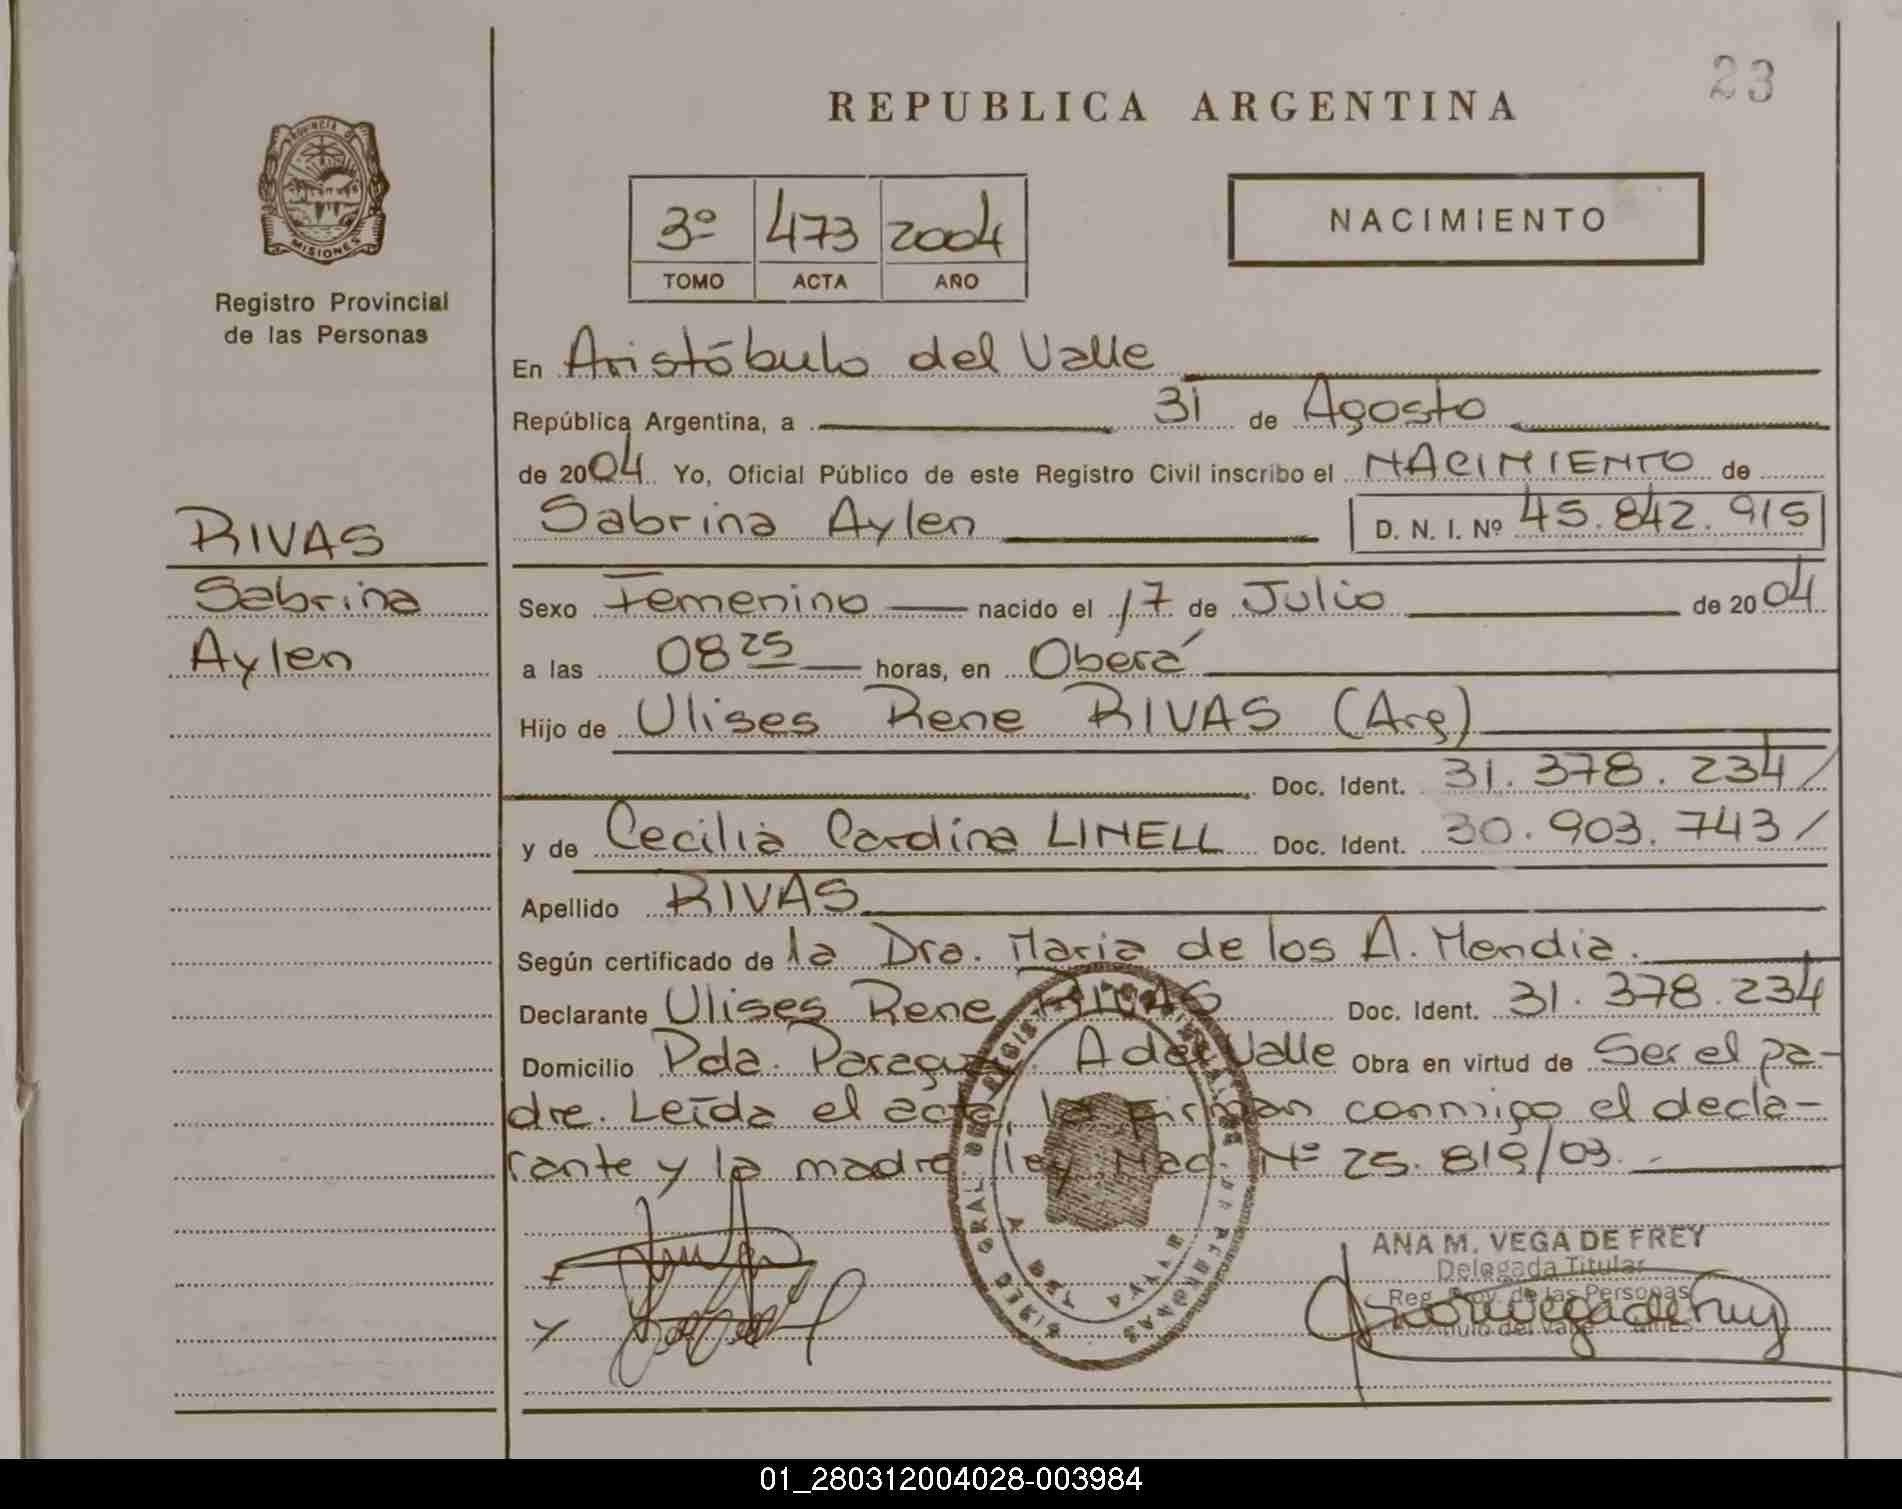 23
REPUBLICA ARGENTINA
PROVINCIA DE
MISIONES
Registro Provincial
de las Personas
3º 473 2004
TOMO ACTA AÑO
NACIMIENTO
En Aristóbulo del Valle
República Argentina, a 31 de Agosto
de 2004 Yo, Oficial Público de este Registro Civil inscribo el NACIMIENTO de
RIVAS
Sabrina
Aylen
Sabrina Aylen D. N. I. Nº 45.842.915
Sexo Femenino nacido el 17 de Julio de 2004
a las 08 25 horas, en Oberá
Hijo de Ulises Rene RIVAS (Arg)
Doc. Ident. 31.378.234/
y de Cecilia Cardina LINELL Doc. Ident. 30.903.743/
Apellido RIVAS
Según certificado de la Dra. Maria de los A. Mendia.
Declarante Ulises Rene RIVAS Doc. Ident. 31.378.234
Domicilio Pda. Paraguay. A del Valle Obra en virtud de Ser el pa-
dre. Leída el acta, la firman conmigo el decla-
rante y la madre ley Nac. Nº 25.819/03.-
ANA M. VEGA DE FREY
Delegada Titular
Reg. Prov. de las Personas
01_280312004028-003984